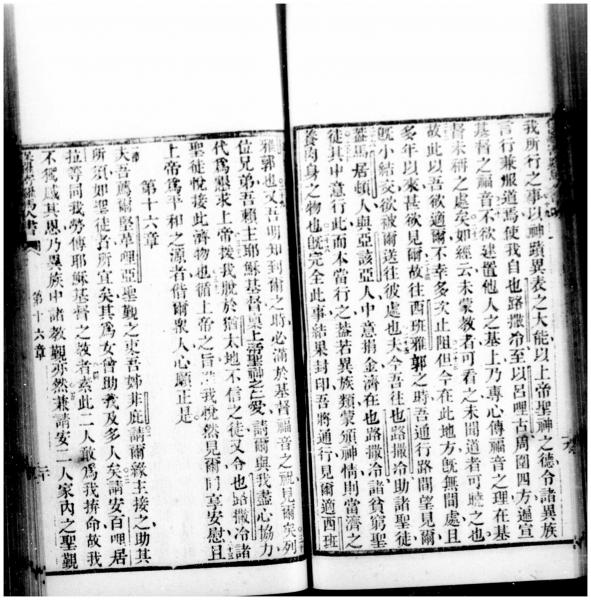 我所行之事以神蹟異表之大能以上帝聖神之德令諸異族
言行兼服道焉使我自也路撒冷至以呂哩古周圍四方遍宣
基督之福音不欲建置他人之基上乃專心傳福音之理在基
督未硏之處矣如經云未蒙教者可看之未聞道者可曉之也
故此以吾欲適爾不幸多次止阻但今在此地方旣無間處且
多年以來甚欲見爾故往西班雅郭之時吾通行路間望見爾
旣小結交欲被爾送往彼處也夫今吾往也路撒冷助諸聖徒
蓋馬居頓人與亞該亞人中意捐金濟在也路撒冷諸貧窮聖
徒其中意行此而本當行之蓋若異族類蒙頒神情則當濟之
養肉身之物也旣完全此事結果封印吾將通行見爾適西班
雅郭也又吾明知到爾之時必滿於基督福音之祝見爾矣列
位兄弟吾賴主耶穌基督與上帝聖神之愛請爾與我盡心協力
代爲懇求上帝拨我脫於猶太地不信之徒又令也路撒冷諸
聖徒悅接此濟物也循上帝之旨 我悅然見爾同享安慰且
上帝爲平和之源者偕爾衆人心願正是
第十六章
夫吾薦爾堅革哩亞聖覡之吏吾姊非庇請爾緣主接之助其
所須如聖徒者所宜矣其爲女曾助我及多人矣請安百哩居
拉等同我勞傳耶穌基督之教者矣此二人敢爲我拚命故我
不獨感其恩乃異族中諸教覡亦然兼請安二人家內之聖覡
第十六章